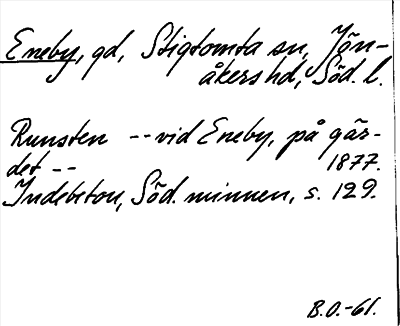 Eneby, gd, Stigtomta sn, Jön-
åkers hd, Söd. l.
Runsten -- vid Eneby, på gär-
det -- 1877.
Indebetou, Söd. minnen, s. 129.
B.O.-61.